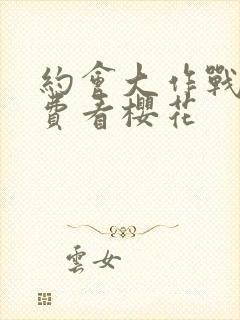 約會大作戰
費看櫻花
雲女